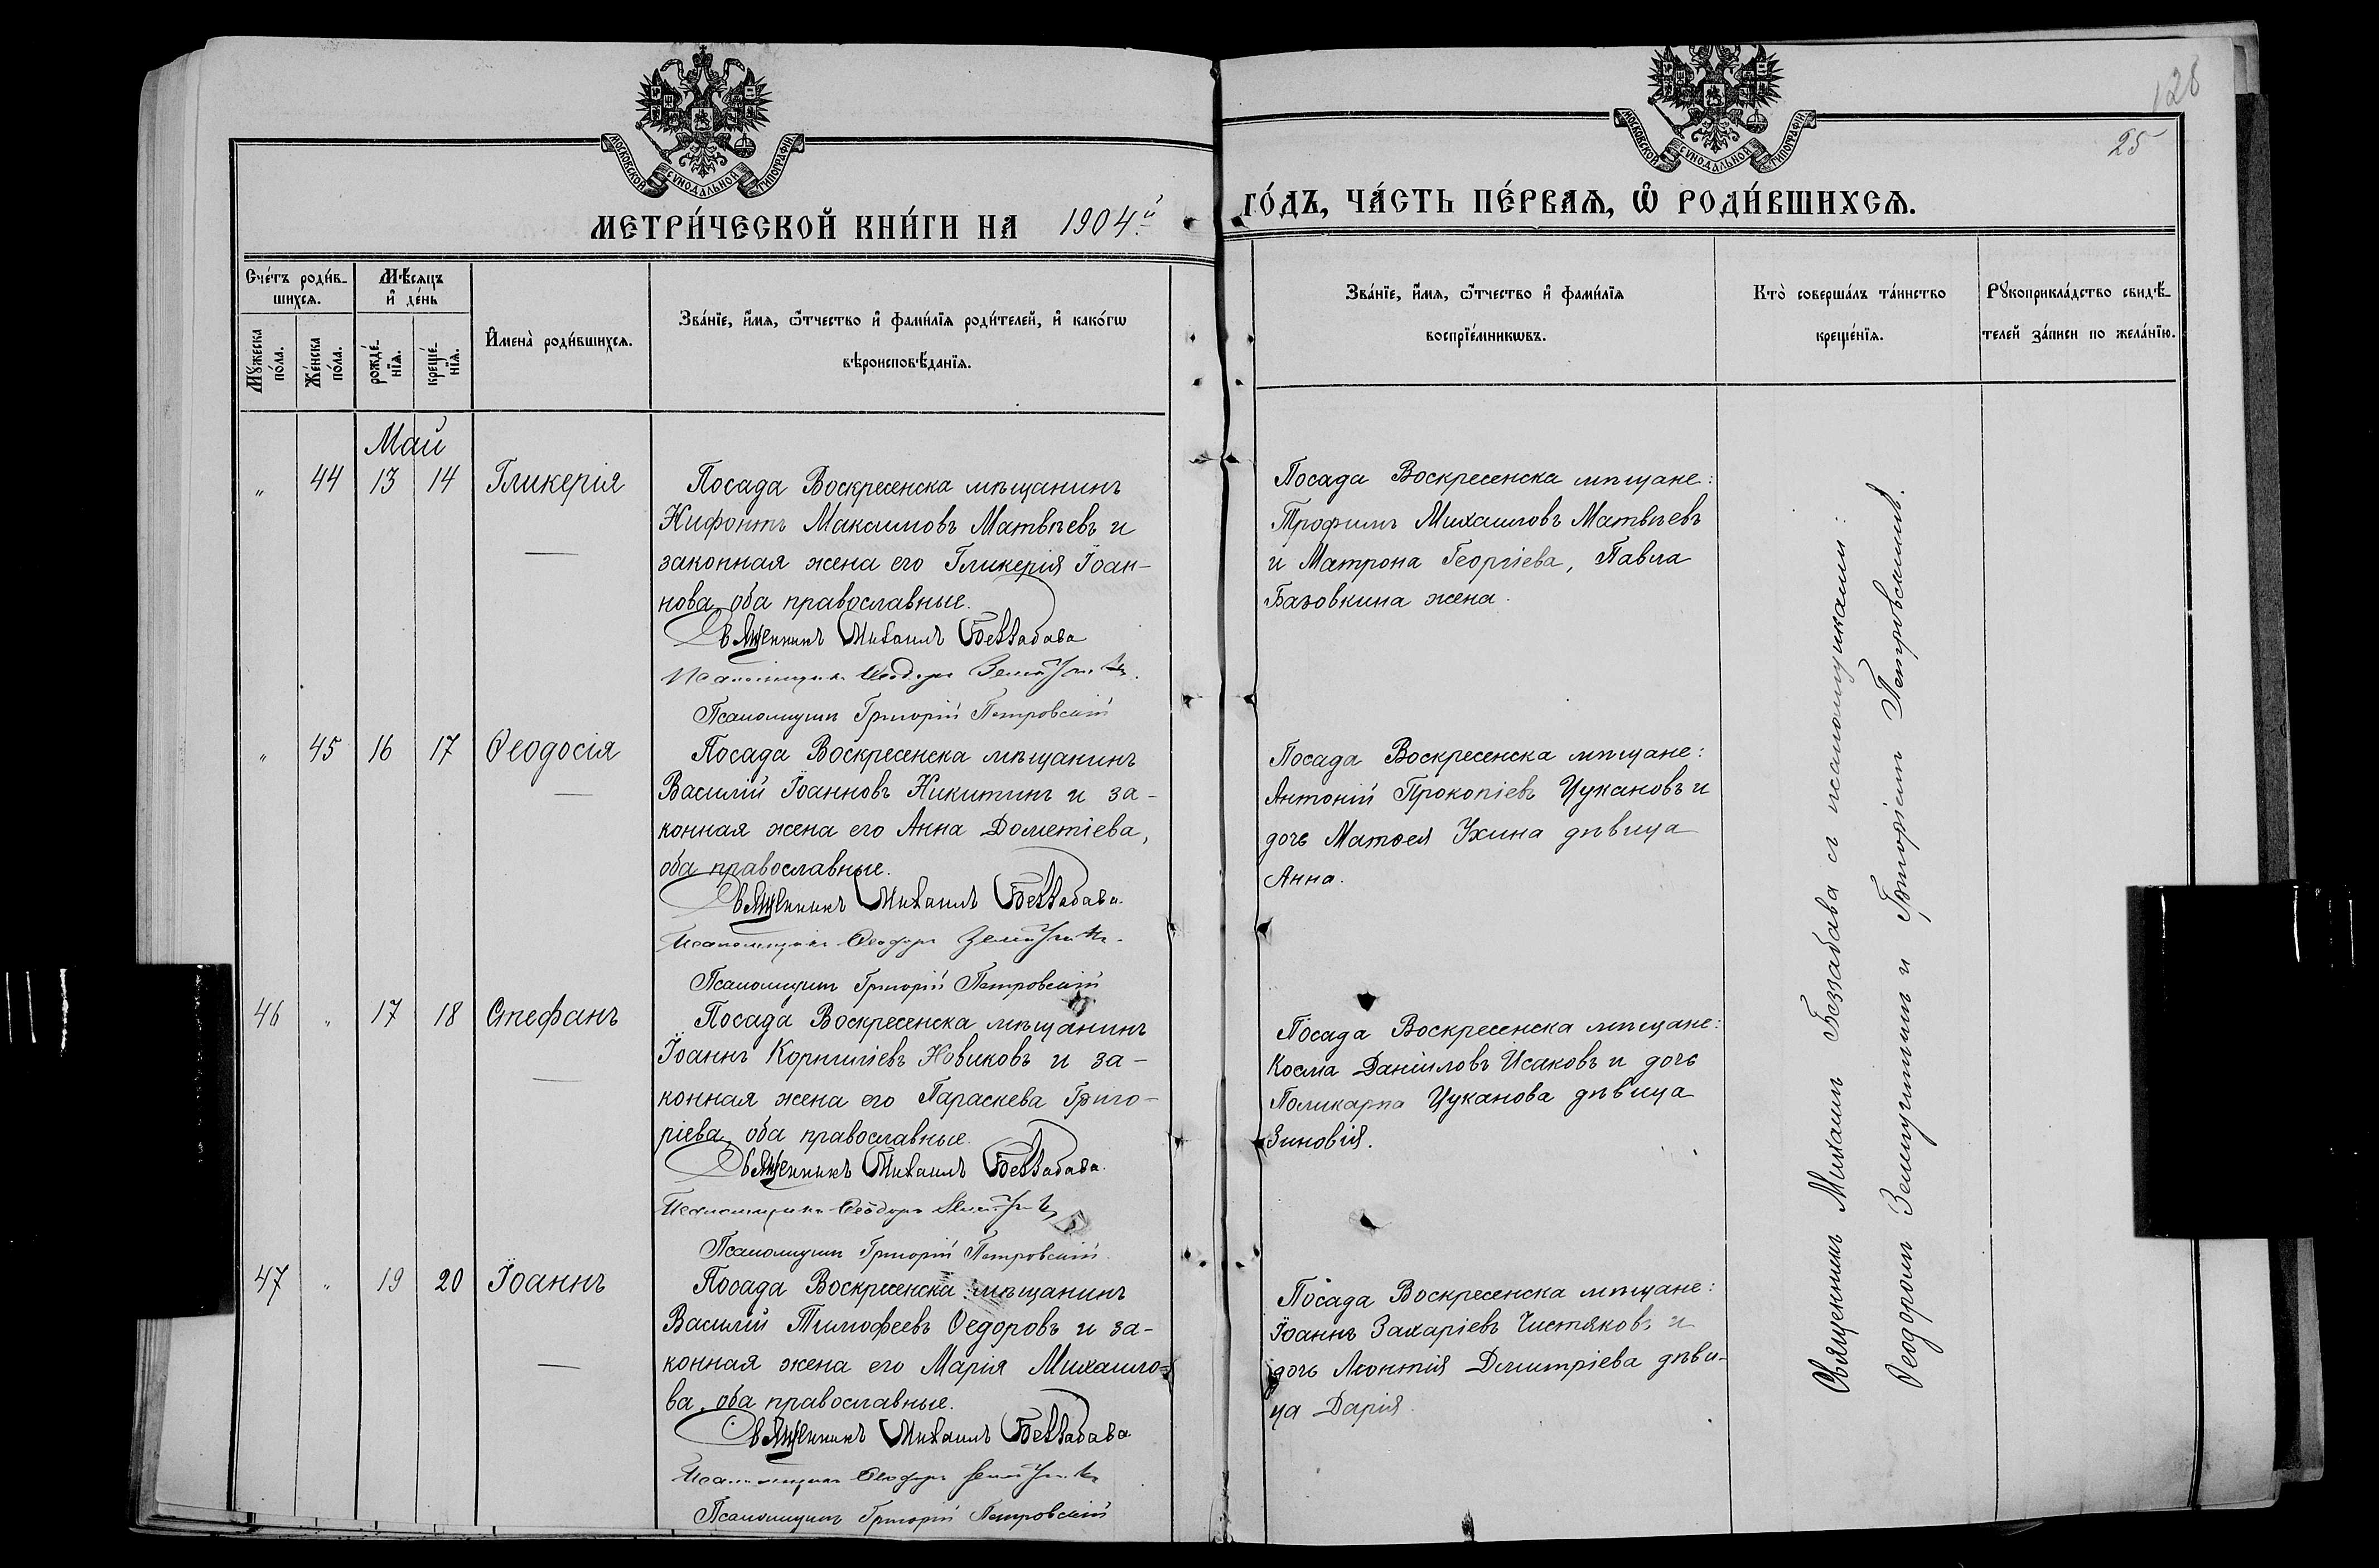 128
25
МОСКОВСКОЙ СѴНОДАЛЬНОЙ ТИПОГРАФІИ
МОСКОВСКОЙ СѴНОДАЛЬНОЙ ТИПОГРАФІИ
МЕТРИ́ЧЕСКОЙ КНИ́ГИ НА 1904й
ГО́ДЪ, ЧА́СТЬ ПЕ́РВАѦ, Ѡ҆ РОДИ́ВШИХСѦ.
Сче́тъ роди́в-
шихсѧ.
Мꙋ́жеска по́ла.
Же́нска по́ла.
Мѣ́сѧцъ
и҆ де́нь
рожде́-нїѧ.
креще́-нїѧ.
И҆мена̀ роди́вшихсѧ.
Зва́нїе, и҆́мѧ, ѻ҆́тчество и҆ фами́лїѧ роди́телей, и҆ како́гѡ
вѣроисповѣ́данїѧ.
Зва́нїе, и҆́мѧ, ѻ҆́тчество и҆ фами́лїѧ
воспрїе́мникѡвъ.
Кто̀ соверша́лъ та́инство
креще́нїѧ.
Рꙋкоприкла́дство свидѣ́-
телей за́писи по жела́нїю.
Май
" 44 13 14 Гликерія
Посада Воскресенска мѣщанинъ
Нифонтъ Максимовъ Матвѣевъ и
законная жена его Гликерія Іоан-
нова, оба православные.
Священникъ Михаилъ Беззабава
Псаломщикъ Ѳеодоръ
Псаломщикъ Григорій Петровскій
Посада Воскресенска мѣщане:
Трофимъ Михаиловъ Матвѣевъ
и Матрона Георгіева, Павла
Базовкина жена.
" 45 16 17 Ѳеодосія
Посада Воскресенска мѣщанинъ
Василій Іоанновъ Никитинъ и за-
конная жена его Анна Дометіева,
оба православные.
Священникъ Михаилъ Беззабава.
Псаломщикъ Ѳеодоръ
Псаломщикъ Григорій Петровскій
Посада Воскресенска мѣщане:
Антоній Прокопіевъ Цукановъ и
дочь Матѳея Ухина дѣвица
Анна.
46 " 17 18 Стефанъ
Посада Воскресенска мѣщанинъ
Іоаннъ Корниліевъ Новиковъ и за-
конная жена его Параскева Григо-
ріева, оба православные.
Священникъ Михаилъ Беззабава.
Псаломщикъ Ѳеодоръ
Псаломщикъ Григорій Петровскій.
Посада Воскресенска мѣщане:
Косма Даніиловъ Исаковъ и дочь
Поликарпа Цуканова дѣвица
Зиновія.
47 " 19 20 Іоаннъ
Посада Воскресенска мѣщанинъ
Василій Тимофеевъ Ѳедоровъ и за-
конная жена его Марія Михаило-
ва, оба православные.
Священникъ Михаилъ Беззабава
Псаломщикъ Ѳеодоръ
Псаломщикъ Григорій Петровскій
Посада Воскресенска мѣщане:
Іоаннъ Захаріевъ Чистяковъ и
дочь Леонтія Димитріева дѣви-
ца Дарія.
Священникъ Михаилъ Беззабава съ псаломщиками:
Ѳеодоромъ и Григоріемъ Петровскимъ.